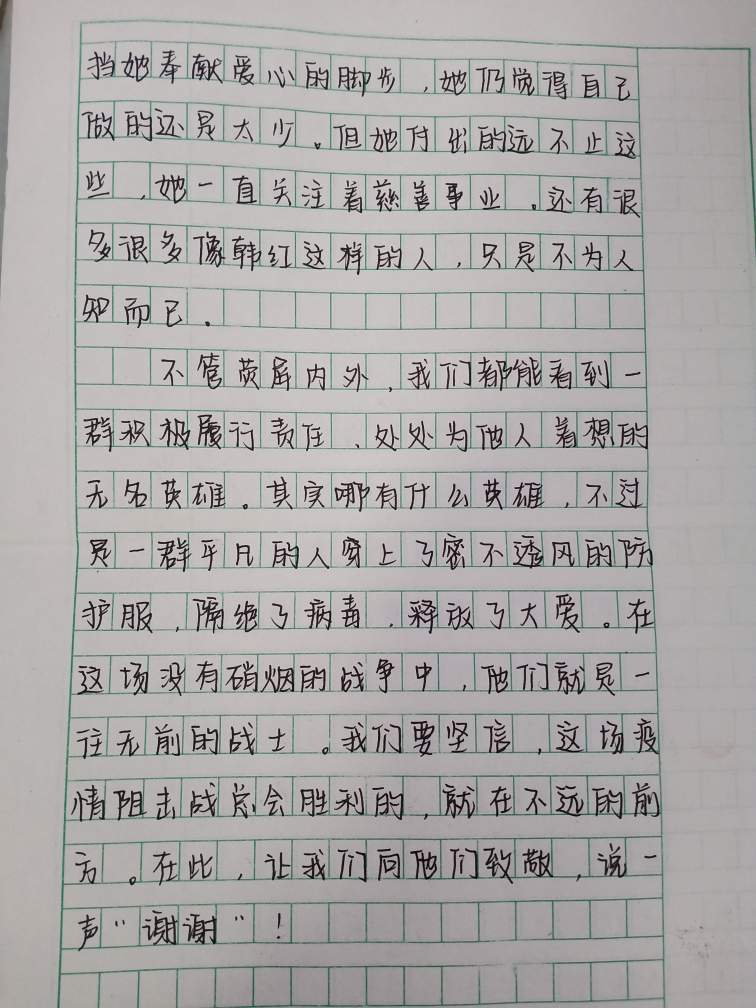 挡她奉献爱心的脚步,她仍觉得自己
做的还是太少。但她付出的远不止这
些,她一直关注着慈善事业。还有很
多很多像韩红这样的人,只是不为人
知而已。
不管荧屏内外,我们都能看到一
群积极履行责任、处处为他人着想的
无名英雄。其实哪有什么英雄,不过
是一群平凡的人穿上了密不透风的防
护服,隔绝了病毒,释放了大爱。在
这场没有硝烟的战争中,他们就是一
往无前的战士。我们要坚信,这场疫
情阻击战总会胜利的,就在不远的前
方。在此,让我们向他们致敬,说一
声“谢谢”!